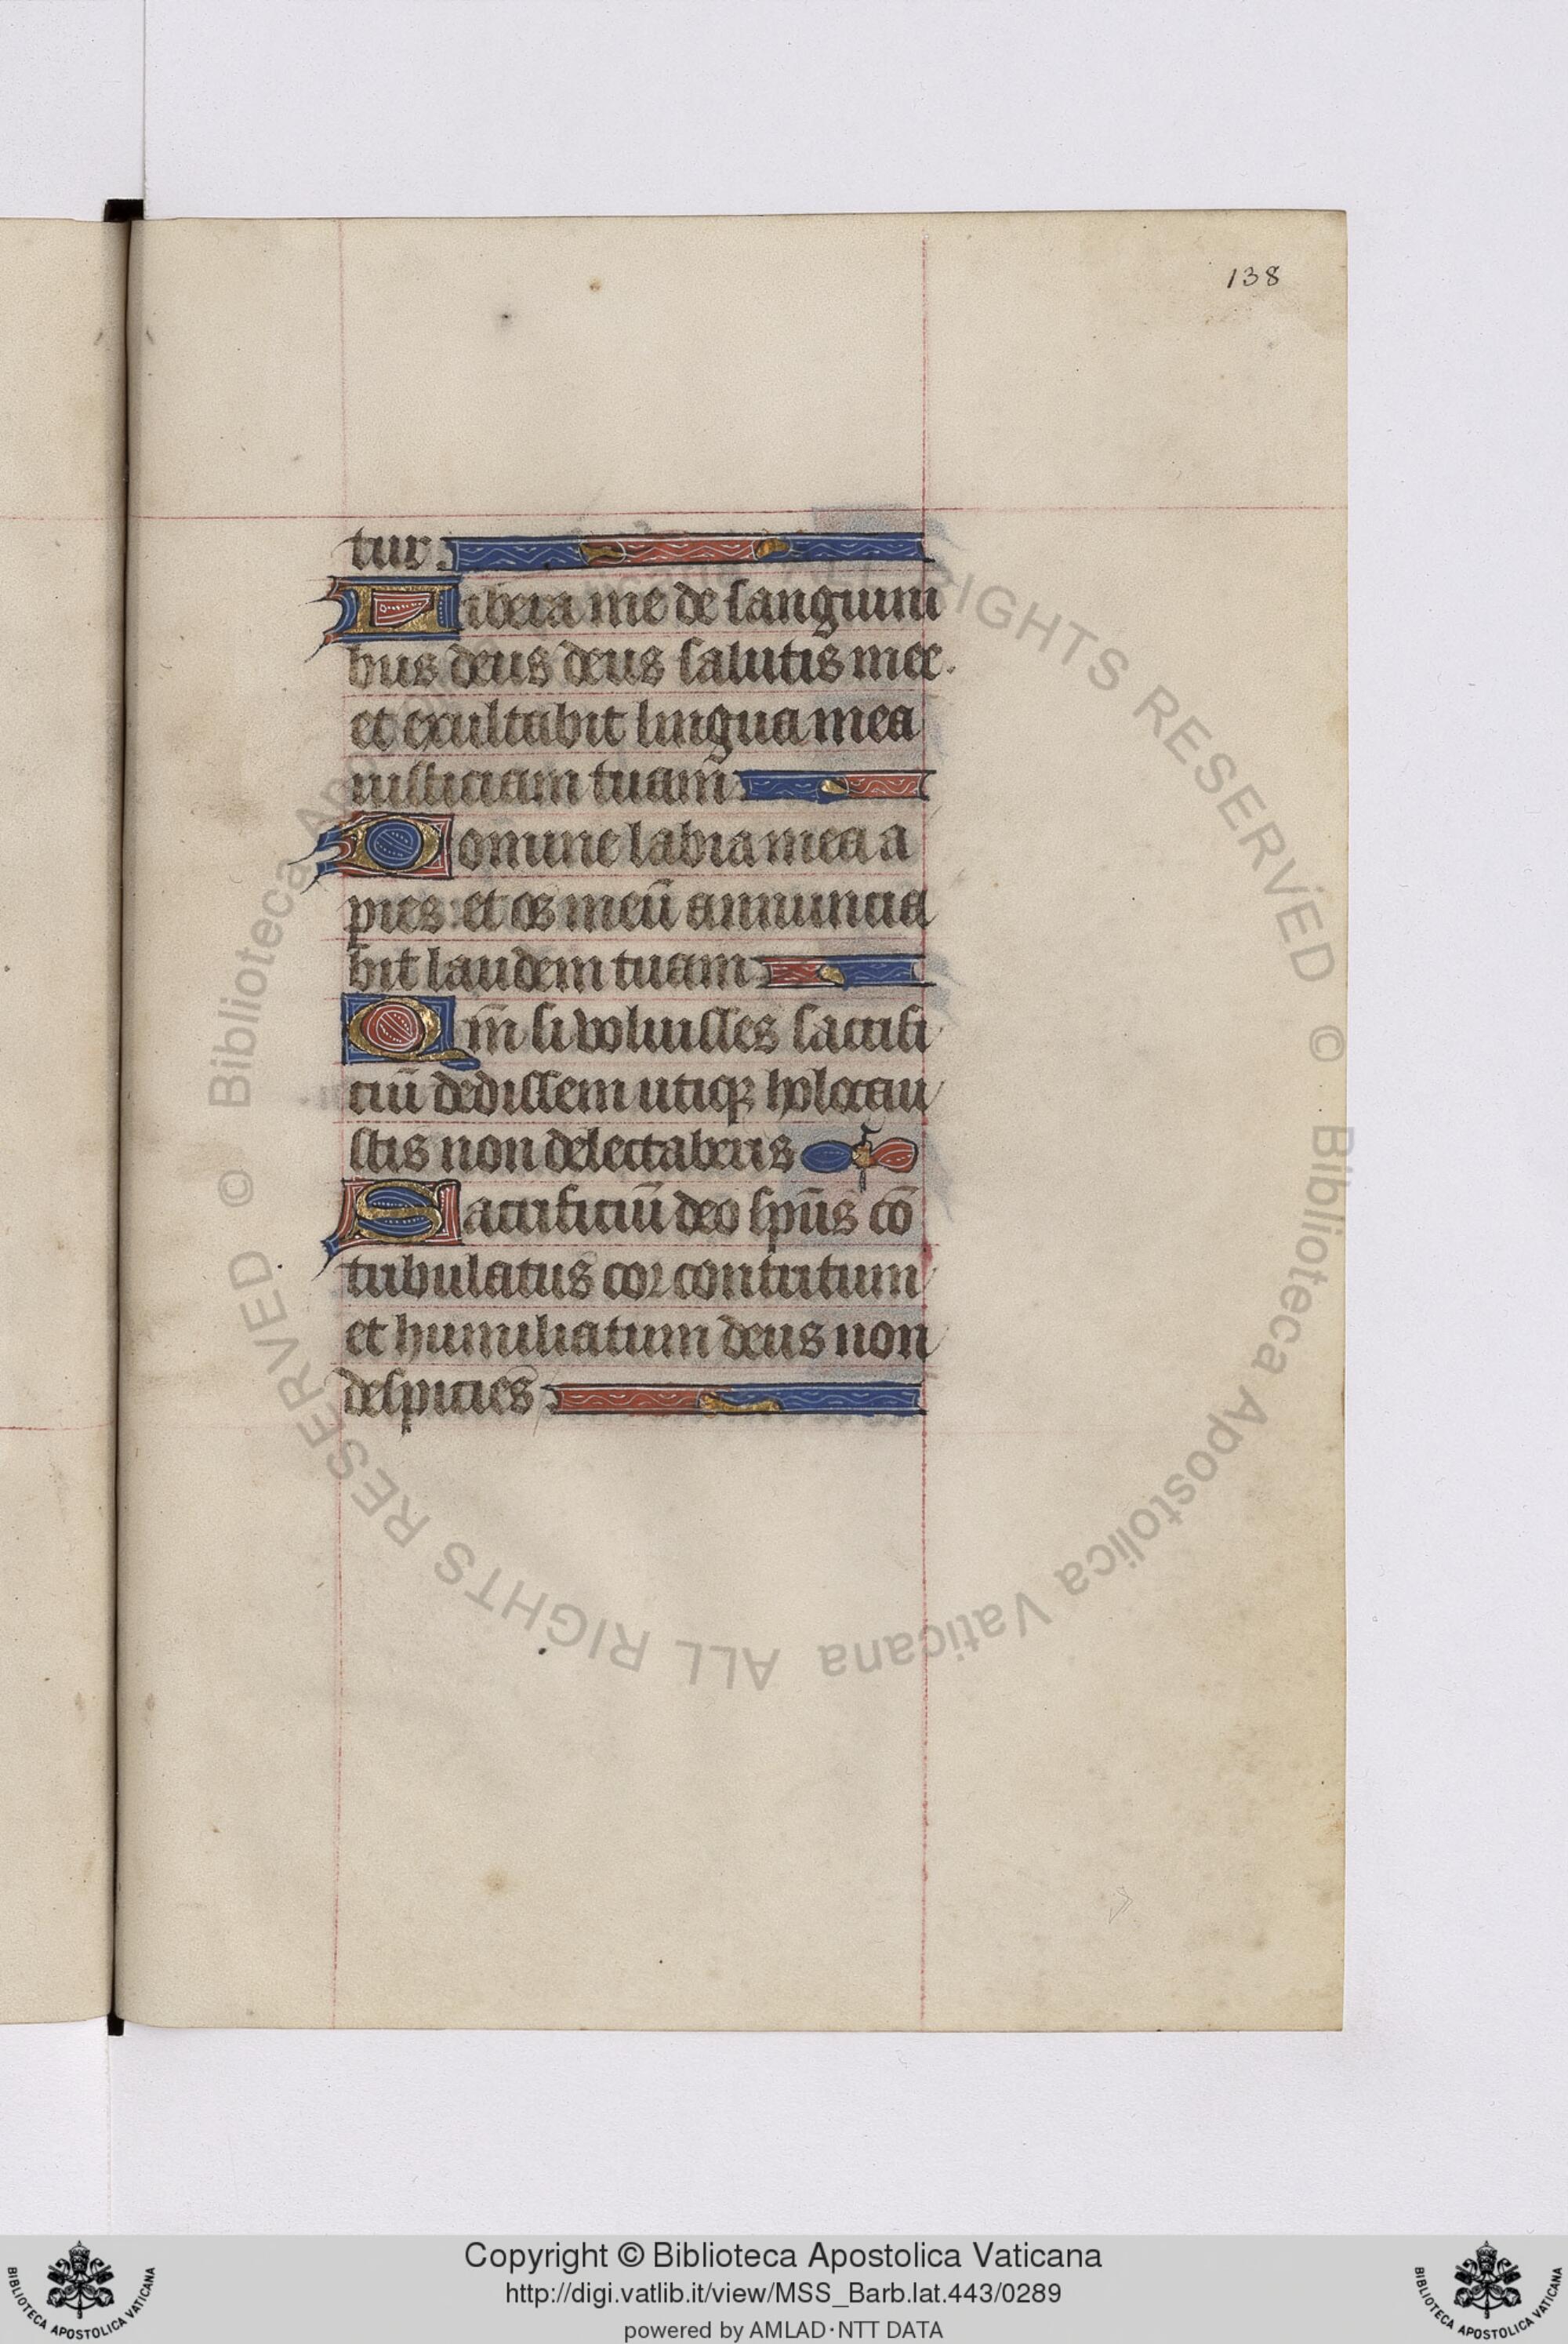 138
tur.
Libera me de sanguini
bus deus deus salutis mee.
et exultabit lingua mea
iusticiam tuam
Domine labia mea a
pries: et os meū annuncia
bit laudem tuam
Qm̄ si voluisses sacrifi
ciū dedissem utiqꝫ holocau
stis non delectaberis
Sacrificiū deo spūs cō
tribulatus cor contritum
et humiliatum deus non
despicies
© Biblioteca Apostolica Vaticana ALL RIGHTS RESERVED
© Biblioteca Apostolica Vaticana ALL RIGHTS RESERVED
Copyright © Biblioteca Apostolica Vaticana
http://digi.vatlib.it/view/MSS_Barb.lat.443/0289
powered by AMLAD·NTT DATA
BIBLIOTECA APOSTOLICA VATICANA
BIBLIOTECA APOSTOLICA VATICANA